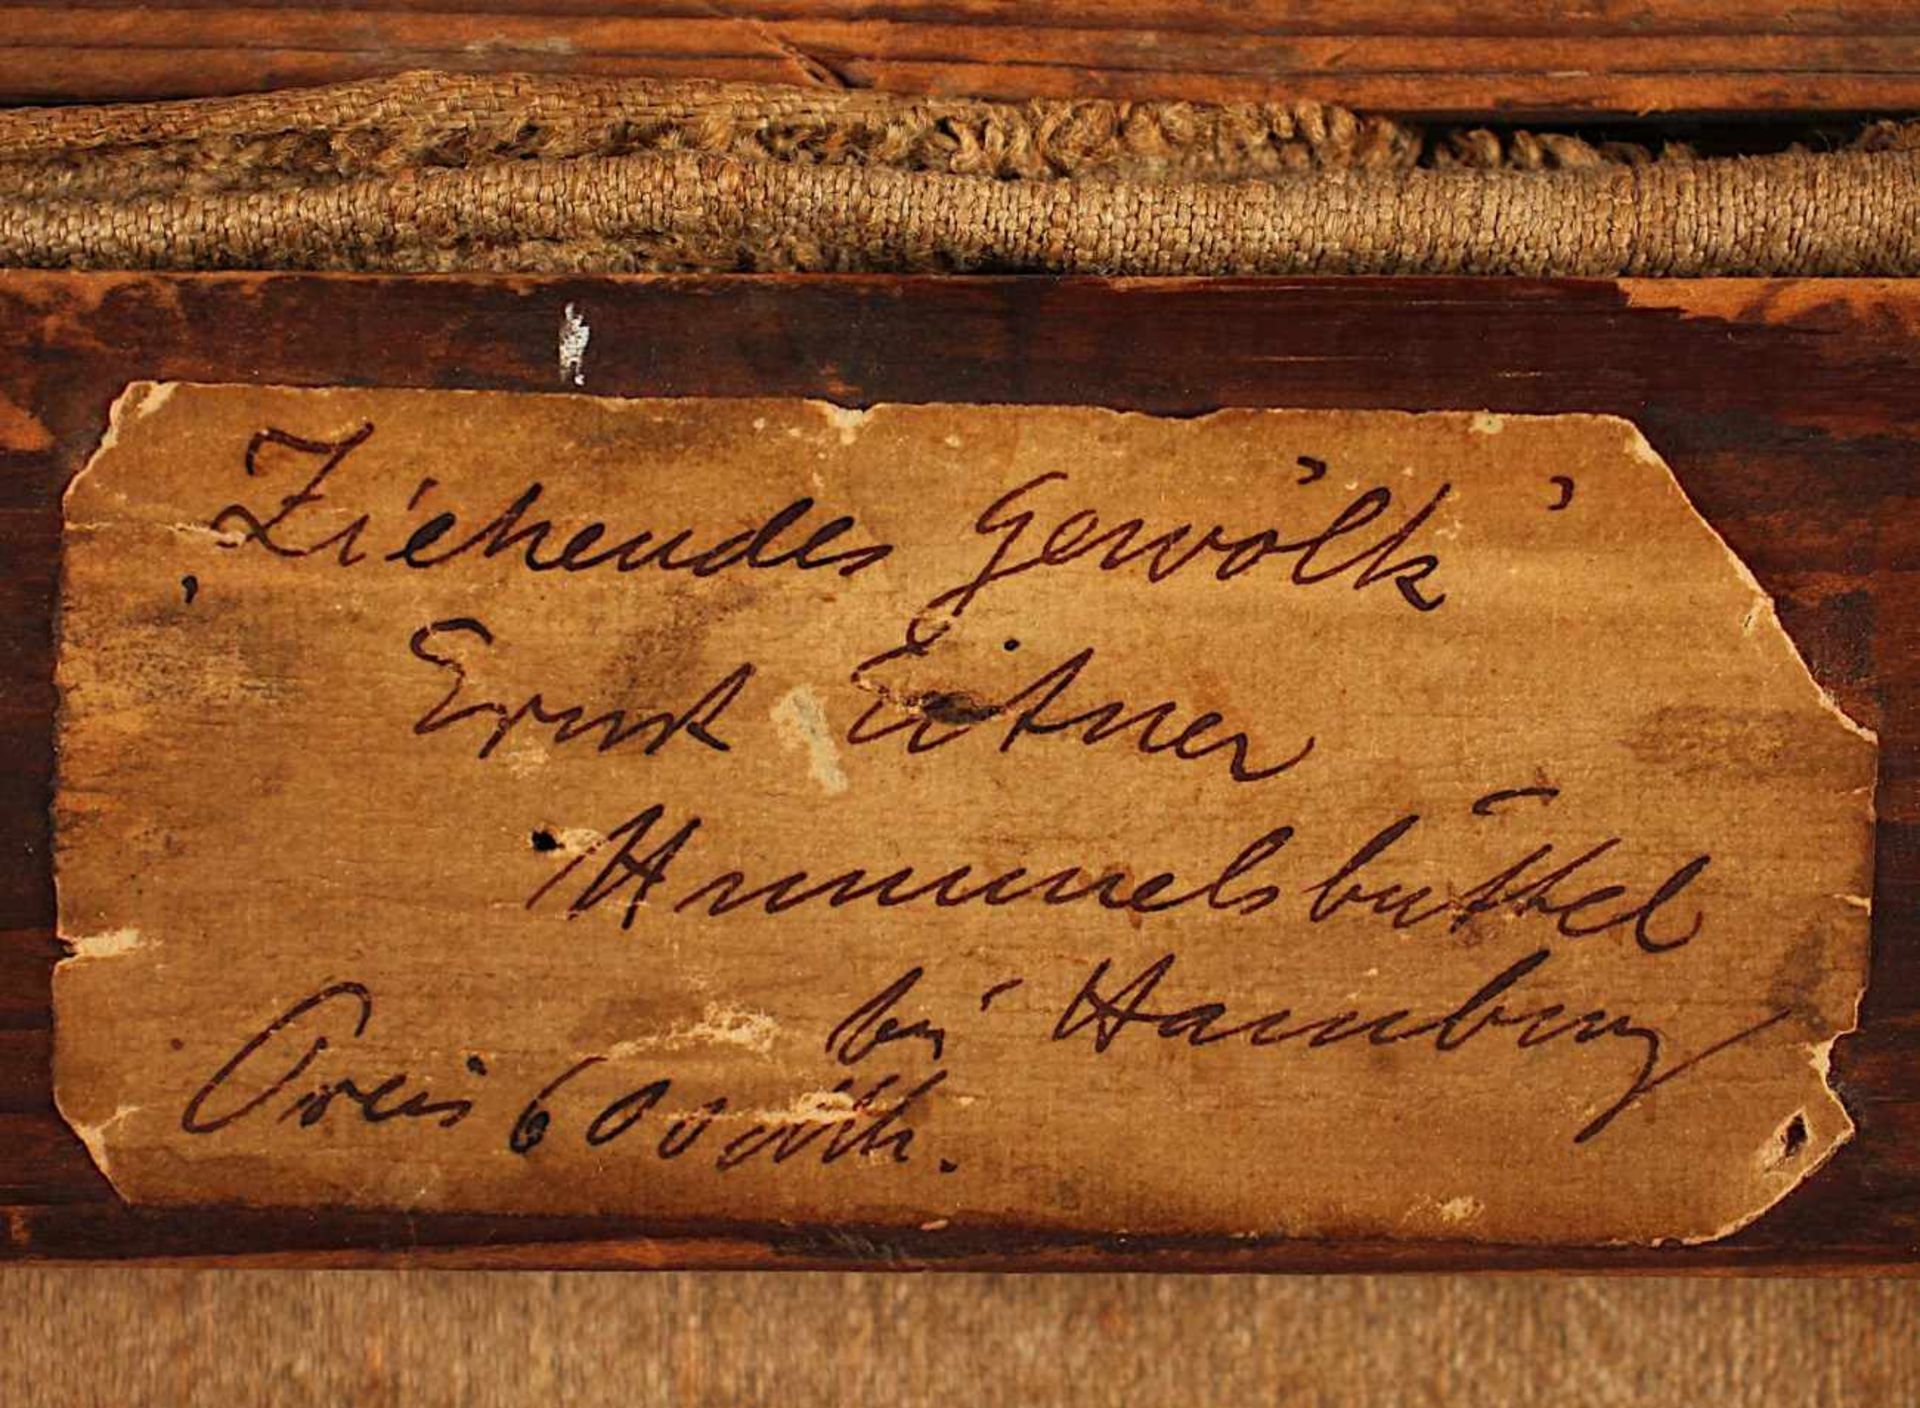 „Ziehendes Gewölk"
Ernst Eitner
Hummelsbüttel
bei Hamburg
Preis 600 Mk.